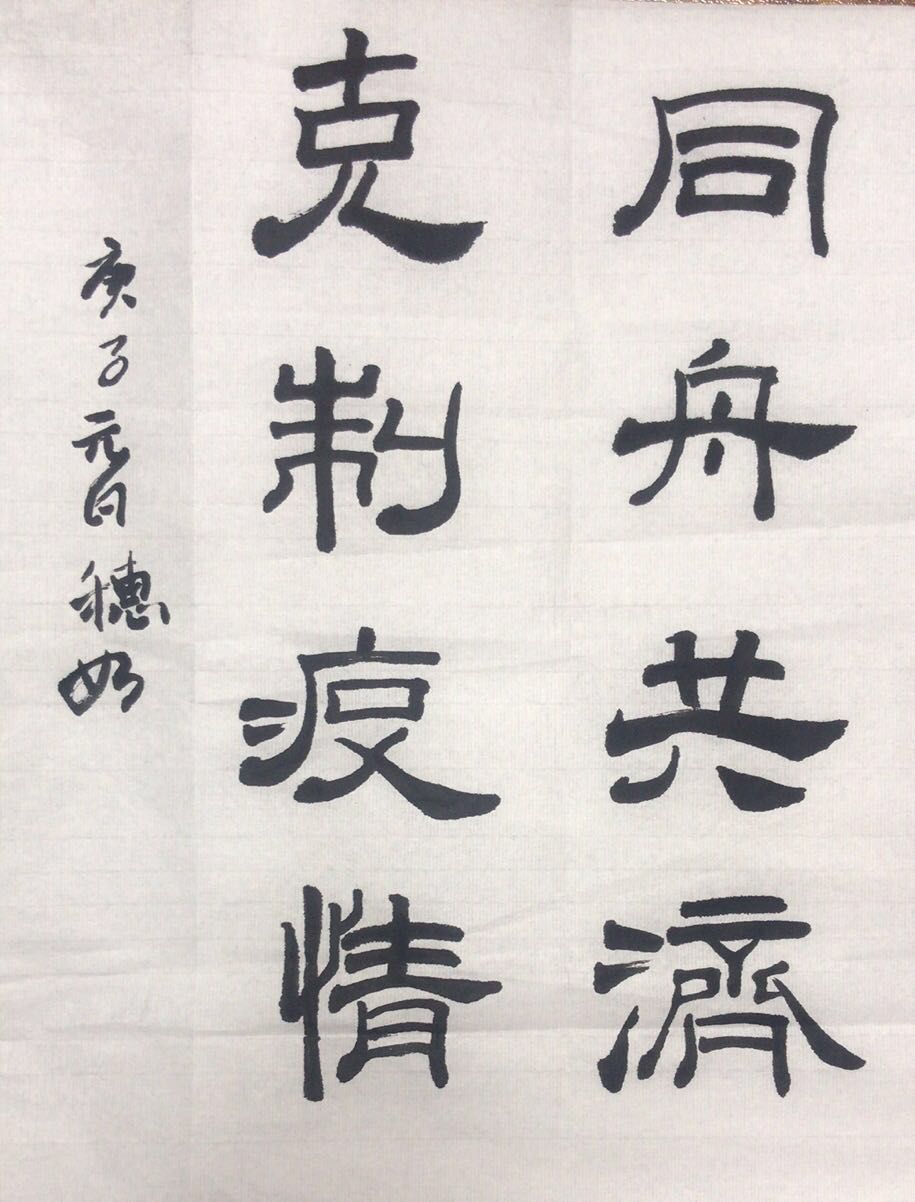 同舟共濟
克制疫情
庚子元日穗如